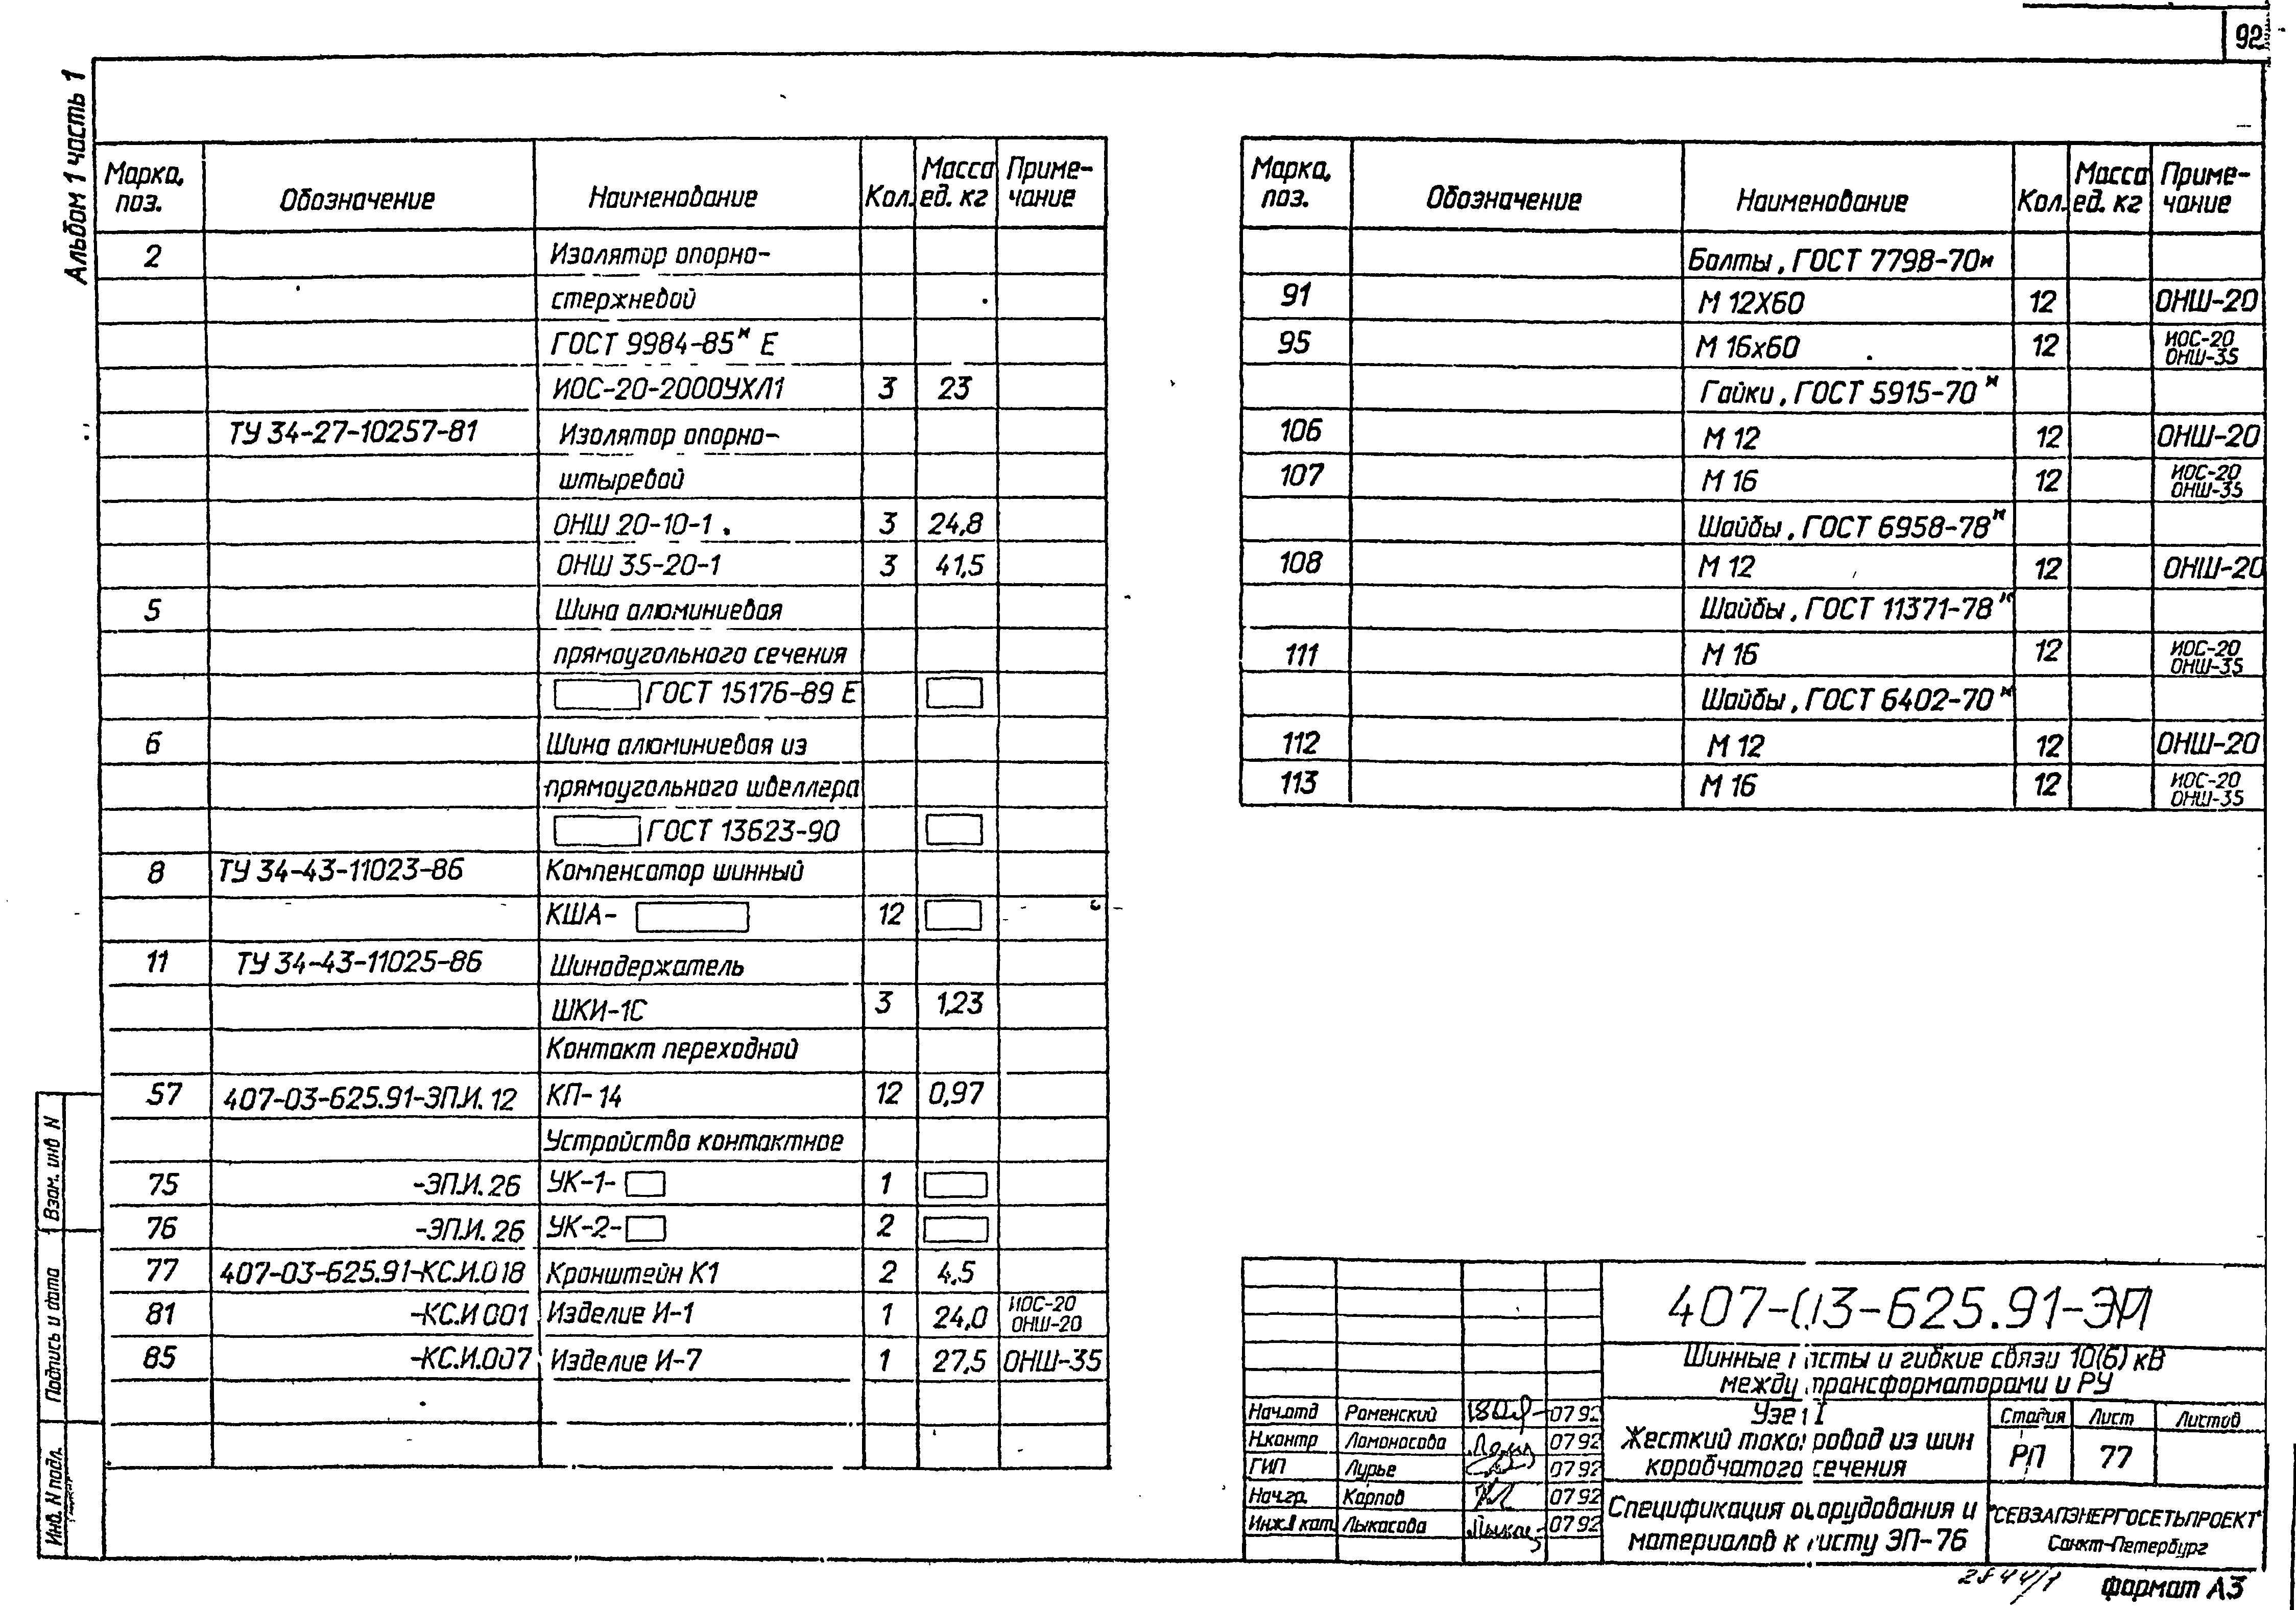 92
Альбом 1 часть 1
Марка, поз. Обозначение Наименование Кол. Масса ед. кг Приме-чание
2 Изолятор опорно-
стержневой
ГОСТ 9984-85* Е
ИОС-20-2000УХЛ1 3 23
ТУ 34-27-10257-81 Изолятор опорно-
штыревой
ОНШ 20-10-1 3 24,8
ОНШ 35-20-1 3 41,5
5 Шина алюминиевая
прямоугольного сечения
ГОСТ 15176-89 Е
6 Шина алюминиевая из
прямоугольного швеллера
ГОСТ 13623-90
8 ТУ 34-43-11023-86 Компенсатор шинный
КША- 12
11 ТУ 34-43-11025-86 Шинодержатель
ШКИ-1С 3 1,23
Контакт переходной
57 407-03-625.91-ЭП.И.12 КП-14 12 0,97
Устройство контактное
75 -ЭП.И.26 УК-1- 1
76 -ЭП.И.26 УК-2- 2
77 407-03-625.91-КС.И.018 Кронштейн К1 2 4,5
81 -КС.И 001 Изделие И-1 1 24,0 ИОС-20 ОНШ-20
85 -КС.И.007 Изделие И-7 1 27,5 ОНШ-35
Марка, поз. Обозначение Наименование Кол. Масса ед. кг Приме-чание
Болты, ГОСТ 7798-70*
91 М 12Х60 12 ОНШ-20
95 М 16х60 12 ИОС-20 ОНШ-35
Гайки, ГОСТ 5915-70*
106 М 12 12 ОНШ-20
107 М 16 12 ИОС-20 ОНШ-35
Шайбы, ГОСТ 6958-78*
108 М 12 12 ОНШ-20
Шайбы, ГОСТ 11371-78*
111 М 16 12 ИОС-20 ОНШ-35
Шайбы, ГОСТ 6402-70*
112 М 12 12 ОНШ-20
113 М 16 12 ИОС-20 ОНШ-35
Взам. инв N
Подпись и дата
Инв. N подл.
407-03-625.91-ЭП
Шинные мосты и гибкие связи 10(6) кВ
между трансформаторами и РУ
Нач.отд Роменский 07 92
Н.контр Ломоносова 07 92
ГИП Лурье 07 92
Нач.гр. Карпов 07 92
Инж.II кат. Лыкасова 07 92
Узел I
Жесткий токопровод из шин
коробчатого сечения
Стадия Лист Листов
РП 77
Спецификация оборудования и
материалов к листу ЭП-76
"СЕВЗАПЭНЕРГОСЕТЬПРОЕКТ"
Санкт-Петербург
формат А3